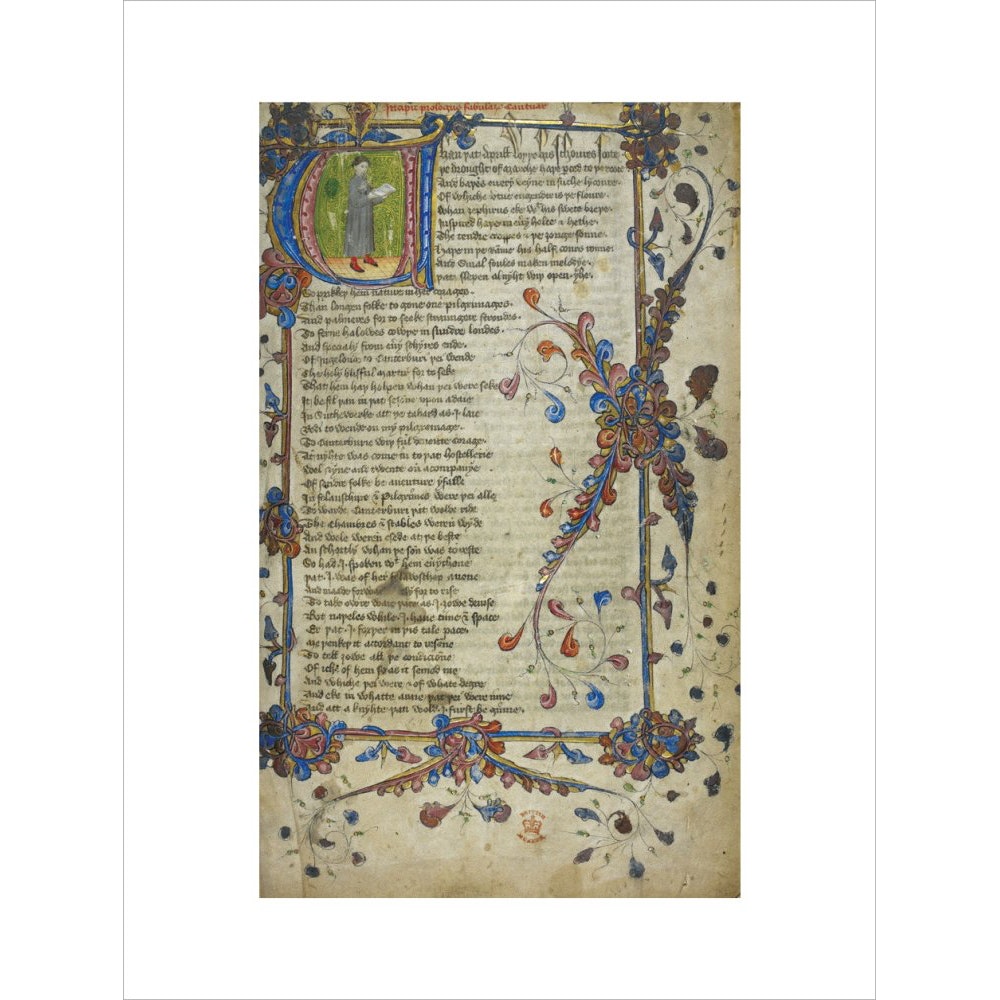 Incipit prologus fabularum Cantuar
Whan þat Aprill
þe drought of haþe to þe rote
And baþed every veyne in suche
Of whiche vertue engendrid is þe floure
Whan zephirus eke wt his swete breþe
Inspired haþe in eūy holte & hethe
The tendre croppes & þe zonge sonne
haþe in þe his half cours ronne
And smal foules maken melodye
þat slepen al nyght wiþ open yhe
So prikkeþ hem nature in her corages
Than longen folke to gone one pilgrimages
And palmeres for to seeke straungere strondes
To ferne halowes cowþe in sundre londes
And specialy from eūy schyres ende
Of Ingelond to Canterburi þei wende
The holy blisful martir for to seke
That hem haþ holpen whan þei were seke
It befil þan in þat sesone upon a daie
In Suthewerke att þe tabard as .I. laie
Redi to wende on my pilgrimage
To Canterburie wiþ ful corage
At nyhte was come in to þat hostellerie
Wel nyne and twente on a companye
Of sundre folke be aventure yfalle
In felauschipe & Pilgrimes were þei alle
To warde Canterburi þat wolde ride
The chambres & stables weren wyde
And wele weren esede at þe beste
An schortly whan þe son was to reste
So had .I. spoken wt hem eūychone
þat .I. was of her felawschep anone
And maade forwarde for to rise
To take owre waie þere as .I. zowe devise
But naþeles while .I. have time & space
Er þat .I. forþer in þis tale pace
Me þenkeþ it accordant to resone
To tell zowe all þe condicione
Of iche of hem so as it semed me
And whiche þei were & of whate degre
And eke in whatte araie þat þei were inne
And att a knyhte þan wole .I. furst beginne
BRITISH
MUSEUM